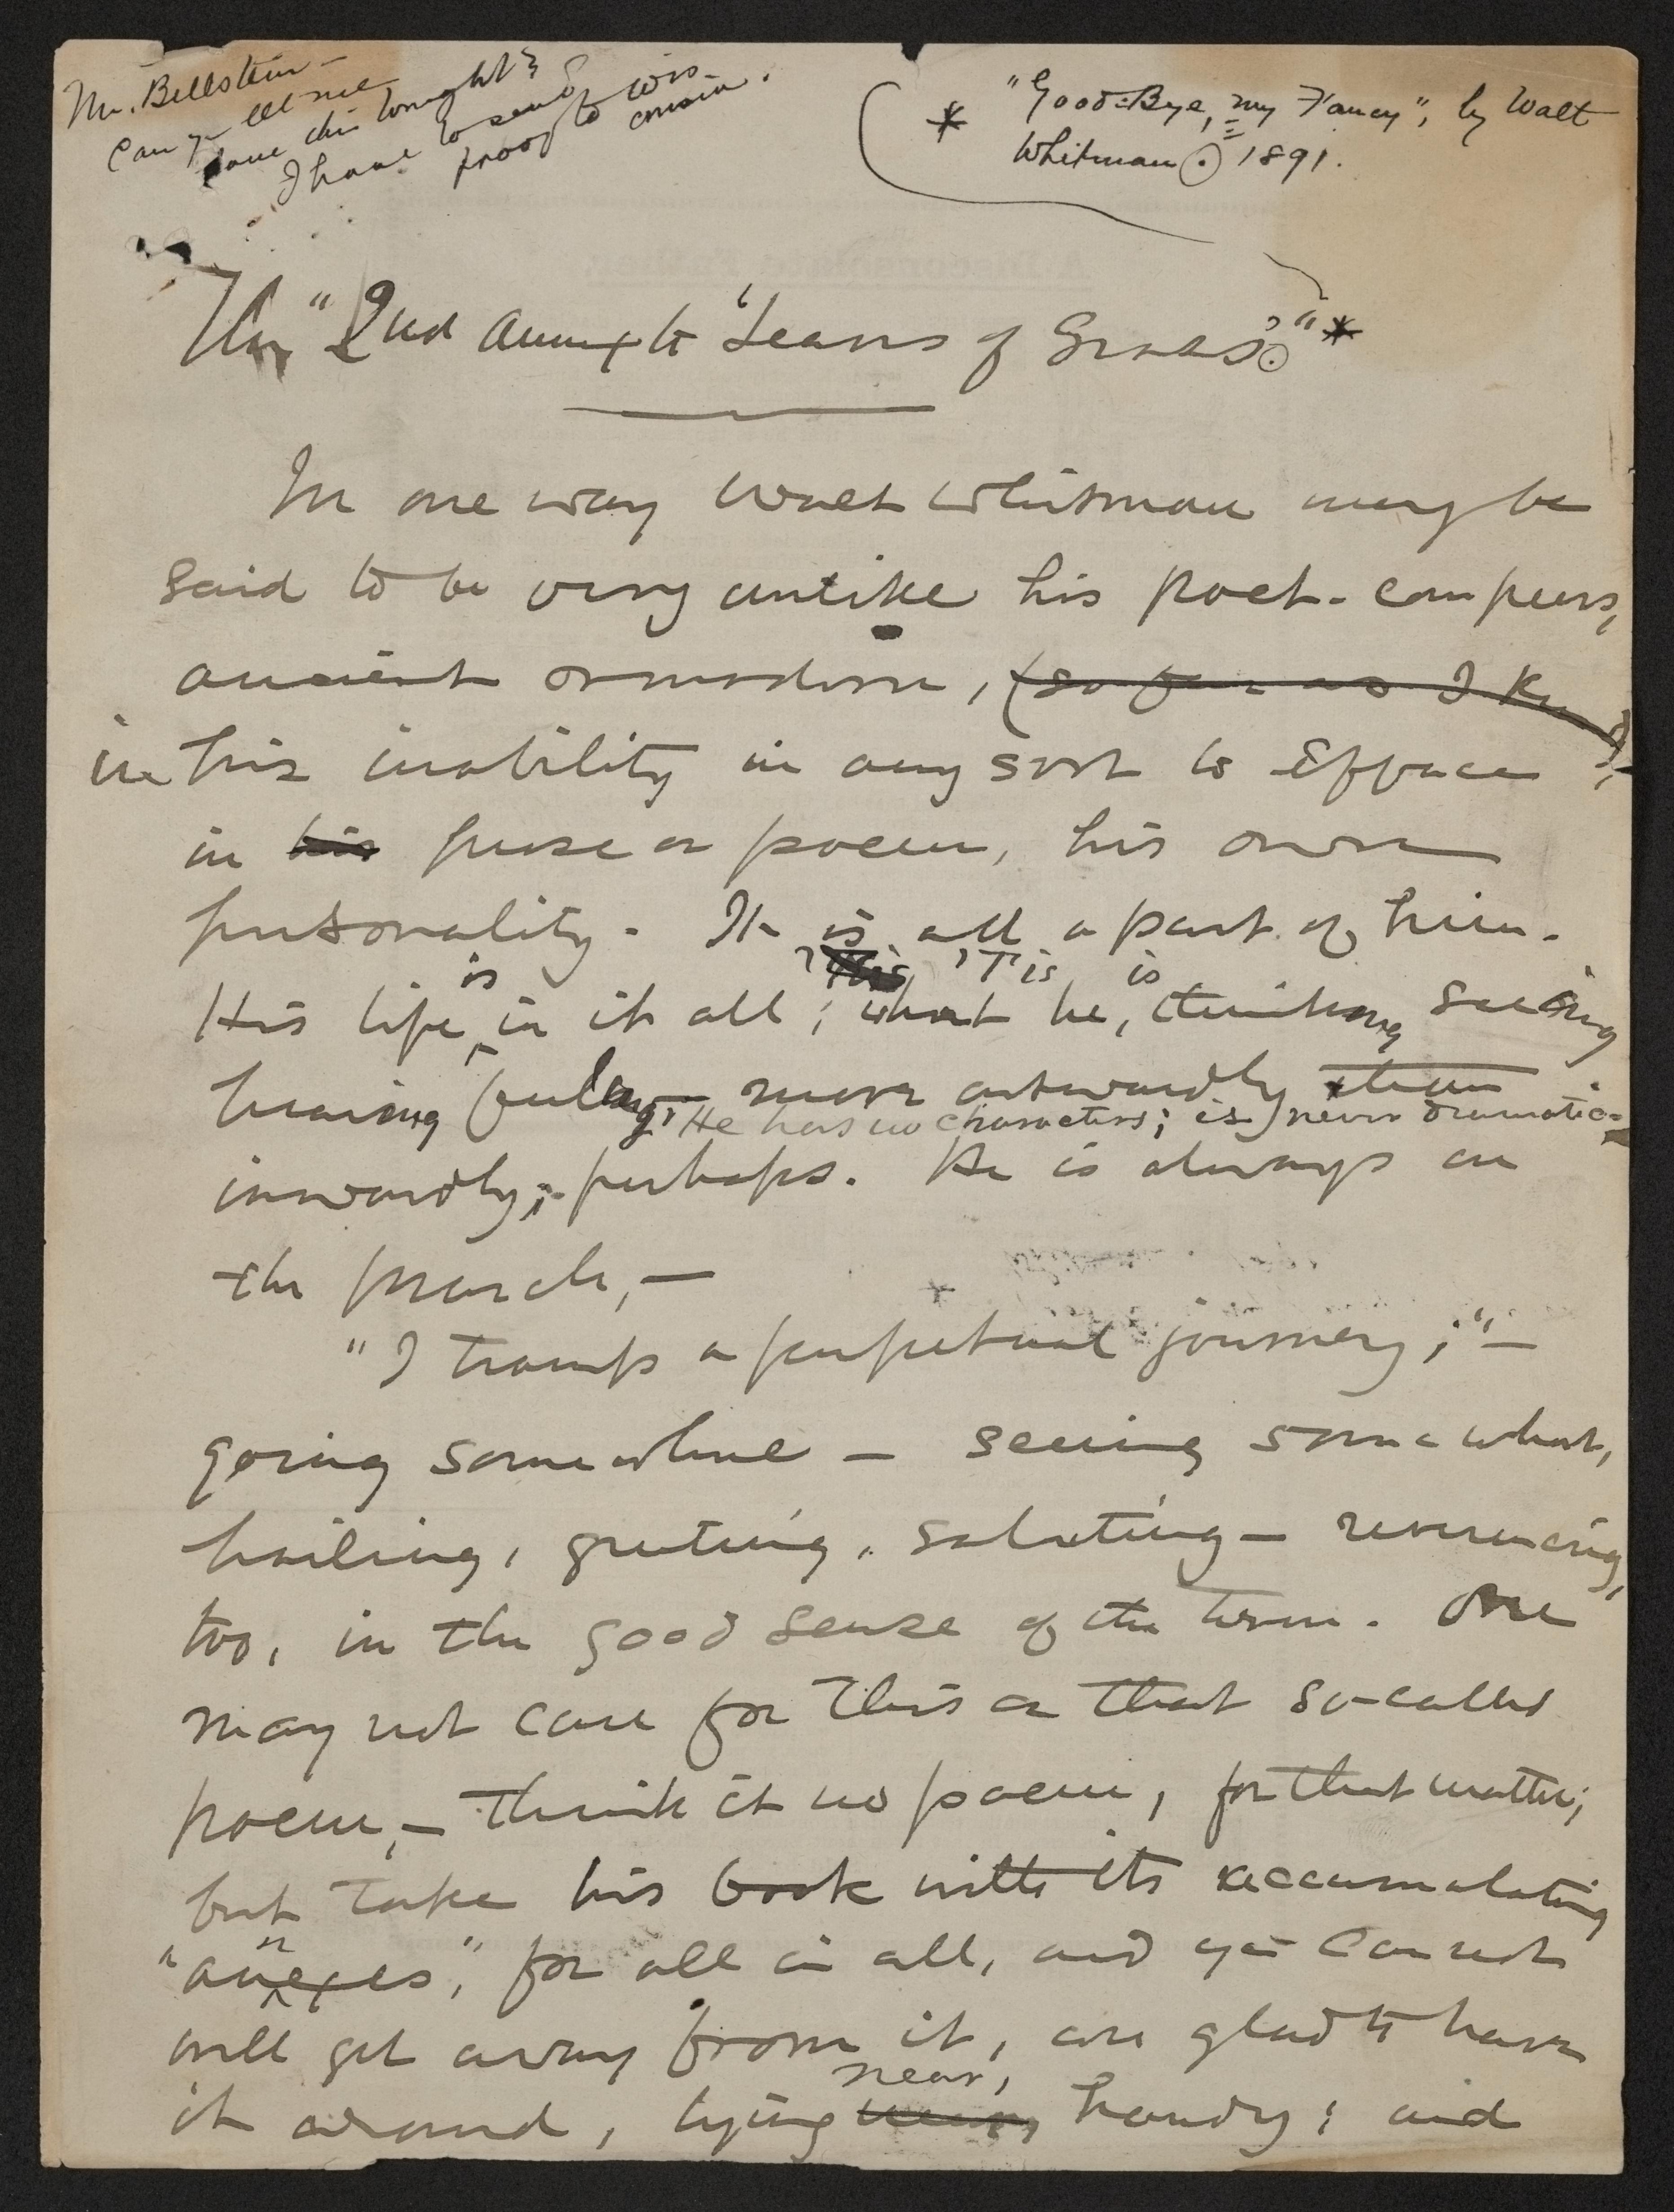 Mr. Billstein—
Can you let me
have this tonight?
I have to send
proof to Wis-
consin.
* "Good-Bye, my Fancy", by Walt
Whitman. 1891.
The "2nd Annex to 'Leaves of Grass'."*
In one way Walt Whitman may be
said to be very unlike his poet-compeers,
ancient or modern, (so far as I know),
in his inability in any sort to efface
in his prose or poem, his own
personality. It is all a part of him.
His life is in it all; 'Tis what he is, thinking seeing
hearing feeling, more outwardly than
He has no characters; is never dramatic
inwardly, perhaps. He is always on
the march,—
"I tramp a perpetual journey;"—
going somewhere — seeing somewhat,
hailing, greeting, saluting — reverencing,
too, in the good sense of the term. One
may not care for this or that so-called
poem,— think it no poem, for that matter;
but take his book with its accumulating
"annexes", for all in all, and you cannot
well get away from it, are glad to have
it around, lying near, handy; and